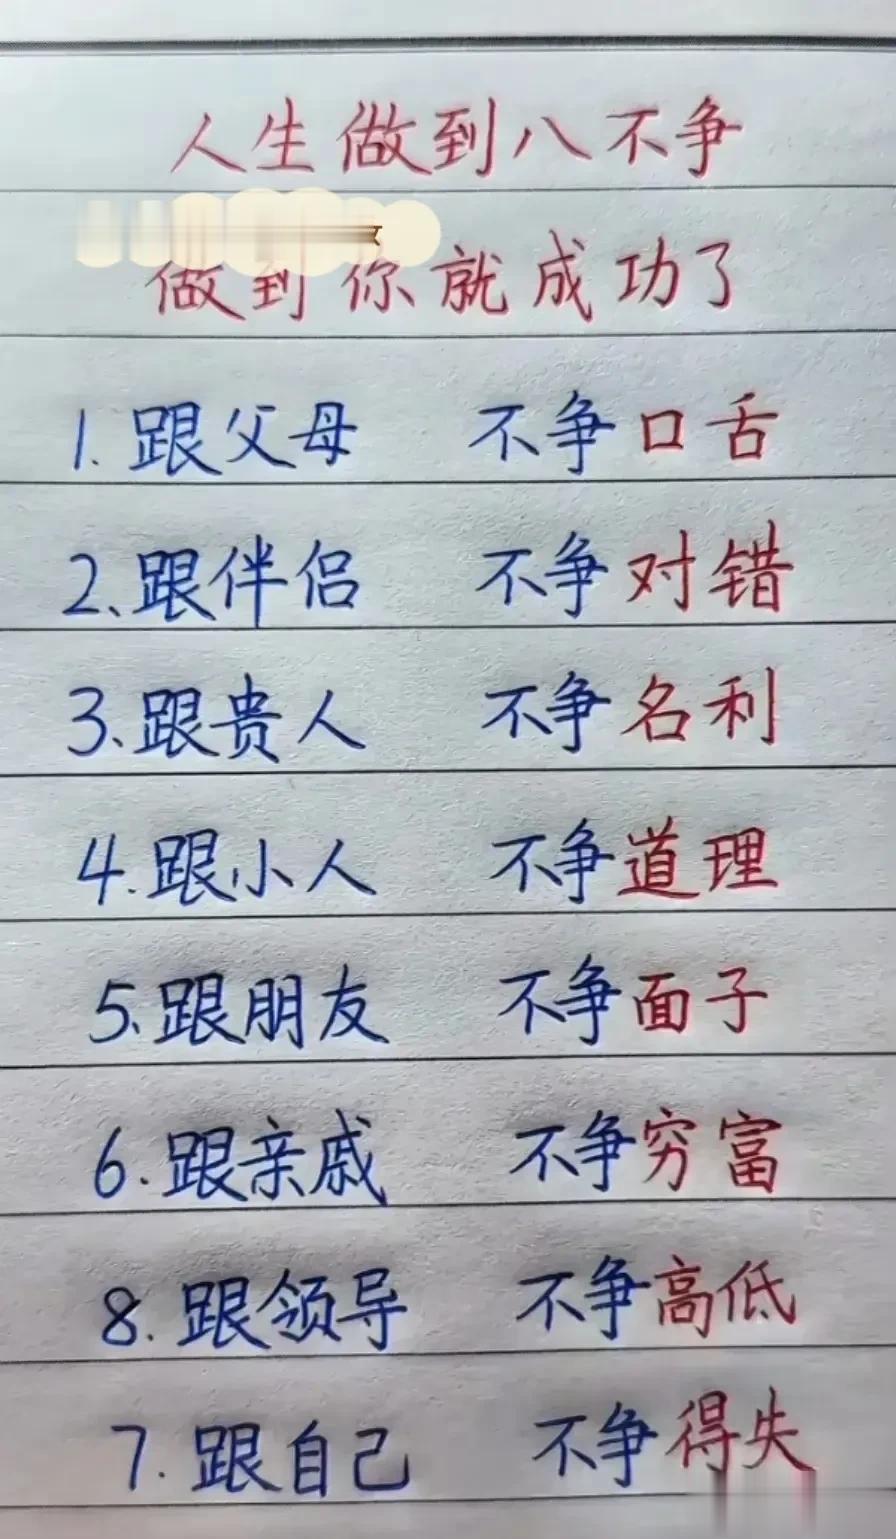 人生做到八不争
做到你就成功了
1.跟父母 不争口舌
2、跟伴侣 不争对错
3、跟贵人 不争名利
4.跟小人 不争道理
5、跟朋友 不争面子
6.跟亲戚 不争穷富
8.跟领导 不争高低
7.跟自己 不争得失